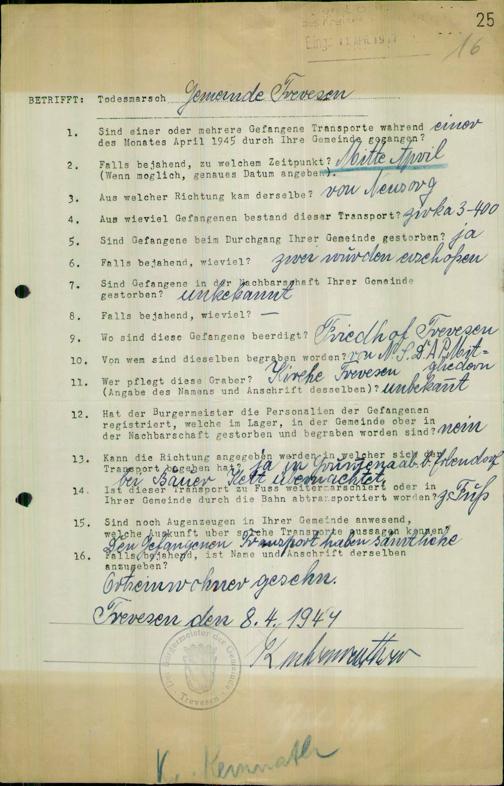 25
16
Eing.
BETRIFFT: Todesmarsch Gemeinde Trevesen
1. Sind einer oder mehrere Gefangene Transporte wahrend einer
des Monates April 1945 durch Ihre Gemeinde gegangen?
2. Falls bejahend, zu welchem Zeitpunkt? Mitte April
(Wenn moglich, genaues Datum angeben).
3. Aus welcher Richtung kam derselbe? von Neusorg
4. Aus wieviel Gefangenen bestand dieser Transport? zirka 3-400
5. Sind Gefangene beim Durchgang Ihrer Gemeinde gestorben? ja
6. Falls bejahend, wieviel? zwei wurden erschoßen
7. Sind Gefangene in der Nachbarschaft Ihrer Gemeinde
gestorben? unbekannt
8. Falls bejahend, wieviel? —
9. Wo sind diese Gefangene beerdigt? Friedhof Trevesen
10. Von wem sind dieselben begraben worden? von N.S.D.A.P. Mit=
gliedern
11. Wer pflegt diese Graber? Kirche Trevesen
(Angabe des Namens und Anschrift desselben)? unbekant
12. Hat der Burgermeister die Personalien der Gefangenen
registriert, welche im Lager, in der Gemeinde ober in
der Nachbarschaft gestorben und begraben worden sind? nein
13. Kann die Richtung angegeben werden in welcher sich der
Transport begeben hat? ja in b. Erbendorf
bei Bauer übernachtet
14. Ist dieser Transport zu Fuss weitermarschiert oder in
Ihrer Gemeinde durch die Bahn abtransportiert worden? z. Fuß
15. Sind noch Augenzeugen in Ihrer Gemeinde anwesend,
welche Auskunft uber solche Transporte aussagen konnen?
Den Gefangenen Transport haben sämtliche
16. Falls bejahend, ist Name und Anschrift derselben
anzugeben?
Ortseinwohner gesehn.
Trevesen den 8.4.1947
Der Bürgermeister der Gemeinde
Trevesen
K. Kemnath